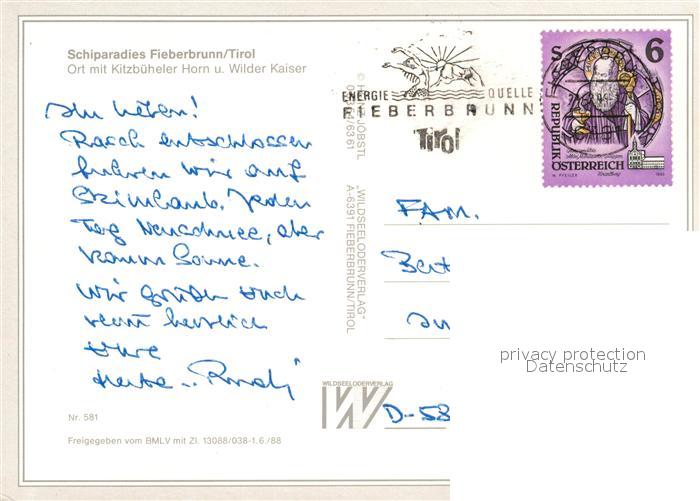 Schiparadies Fieberbrunn/Tirol
Ort mit Kitzbüheler Horn u. Wilder Kaiser
Ihr Lieben!
Rasch entschlossen
fuhren wir auf
Skiurlaub. Jeden
Tag Neuschnee, aber
kaum Sonne.
Wir grüßen Euch
recht herzlich
Eure
Nr. 581
Freigegeben vom BMLV mit Zl. 13088/038-1.6./88
JOBSTL
"WILDSEELODERVERLAG"
A-6391 FIEBERBRUNN/TIROL
WILDSEELODERVERLAG
W
ENERGIE QUELLE
FIEBERBRUNN
Tirol
6
REPUBLIK
ÖSTERREICH
FAM.
D-58
privacy protection
Datenschutz